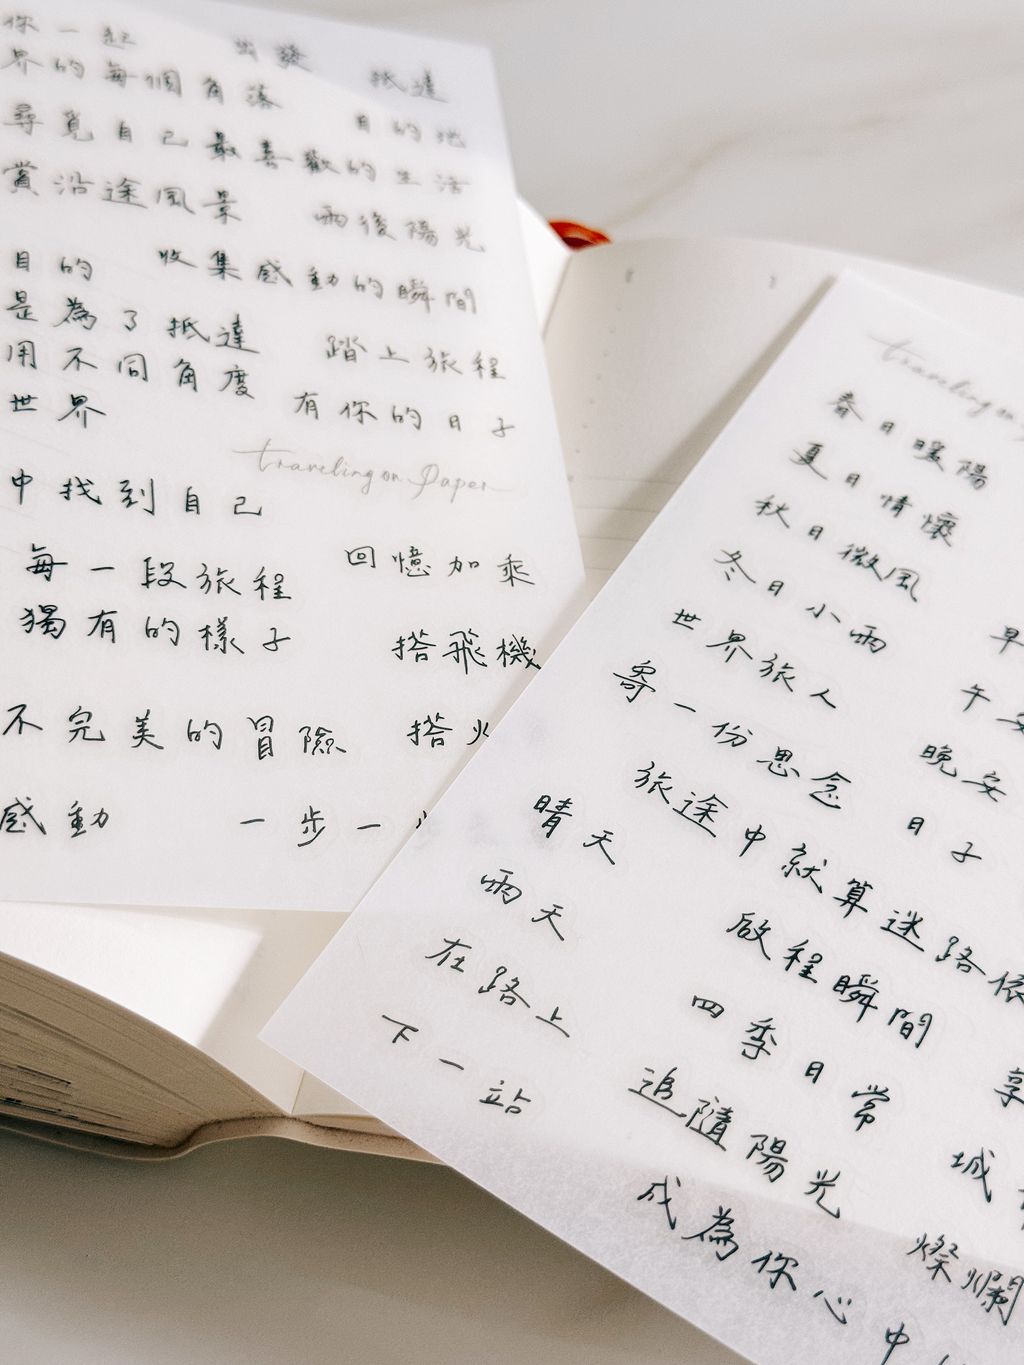 你一起 出發
界的每個角落 抵達
尋覓自己最喜歡的生活 目的地
賞沿途風景 雨後陽光
目的 收集感動的瞬間
是為了抵達 踏上旅程
用不同角度 有你的日子
世界
traveling on Paper
中找到自己
每一段旅程 回憶加乘
獨有的樣子 搭飛機
不完美的冒險 搭火
感動 一步一
traveling on
春日暖陽
夏日情懷
秋日微風
冬日小雨 早
世界旅人 午安
寄一份思念 晚安
旅途中就算迷路依 日子
晴天 啟程瞬間
雨天 四季日常 享
在路上 追隨陽光 城
下一站 成為你心中 燦爛